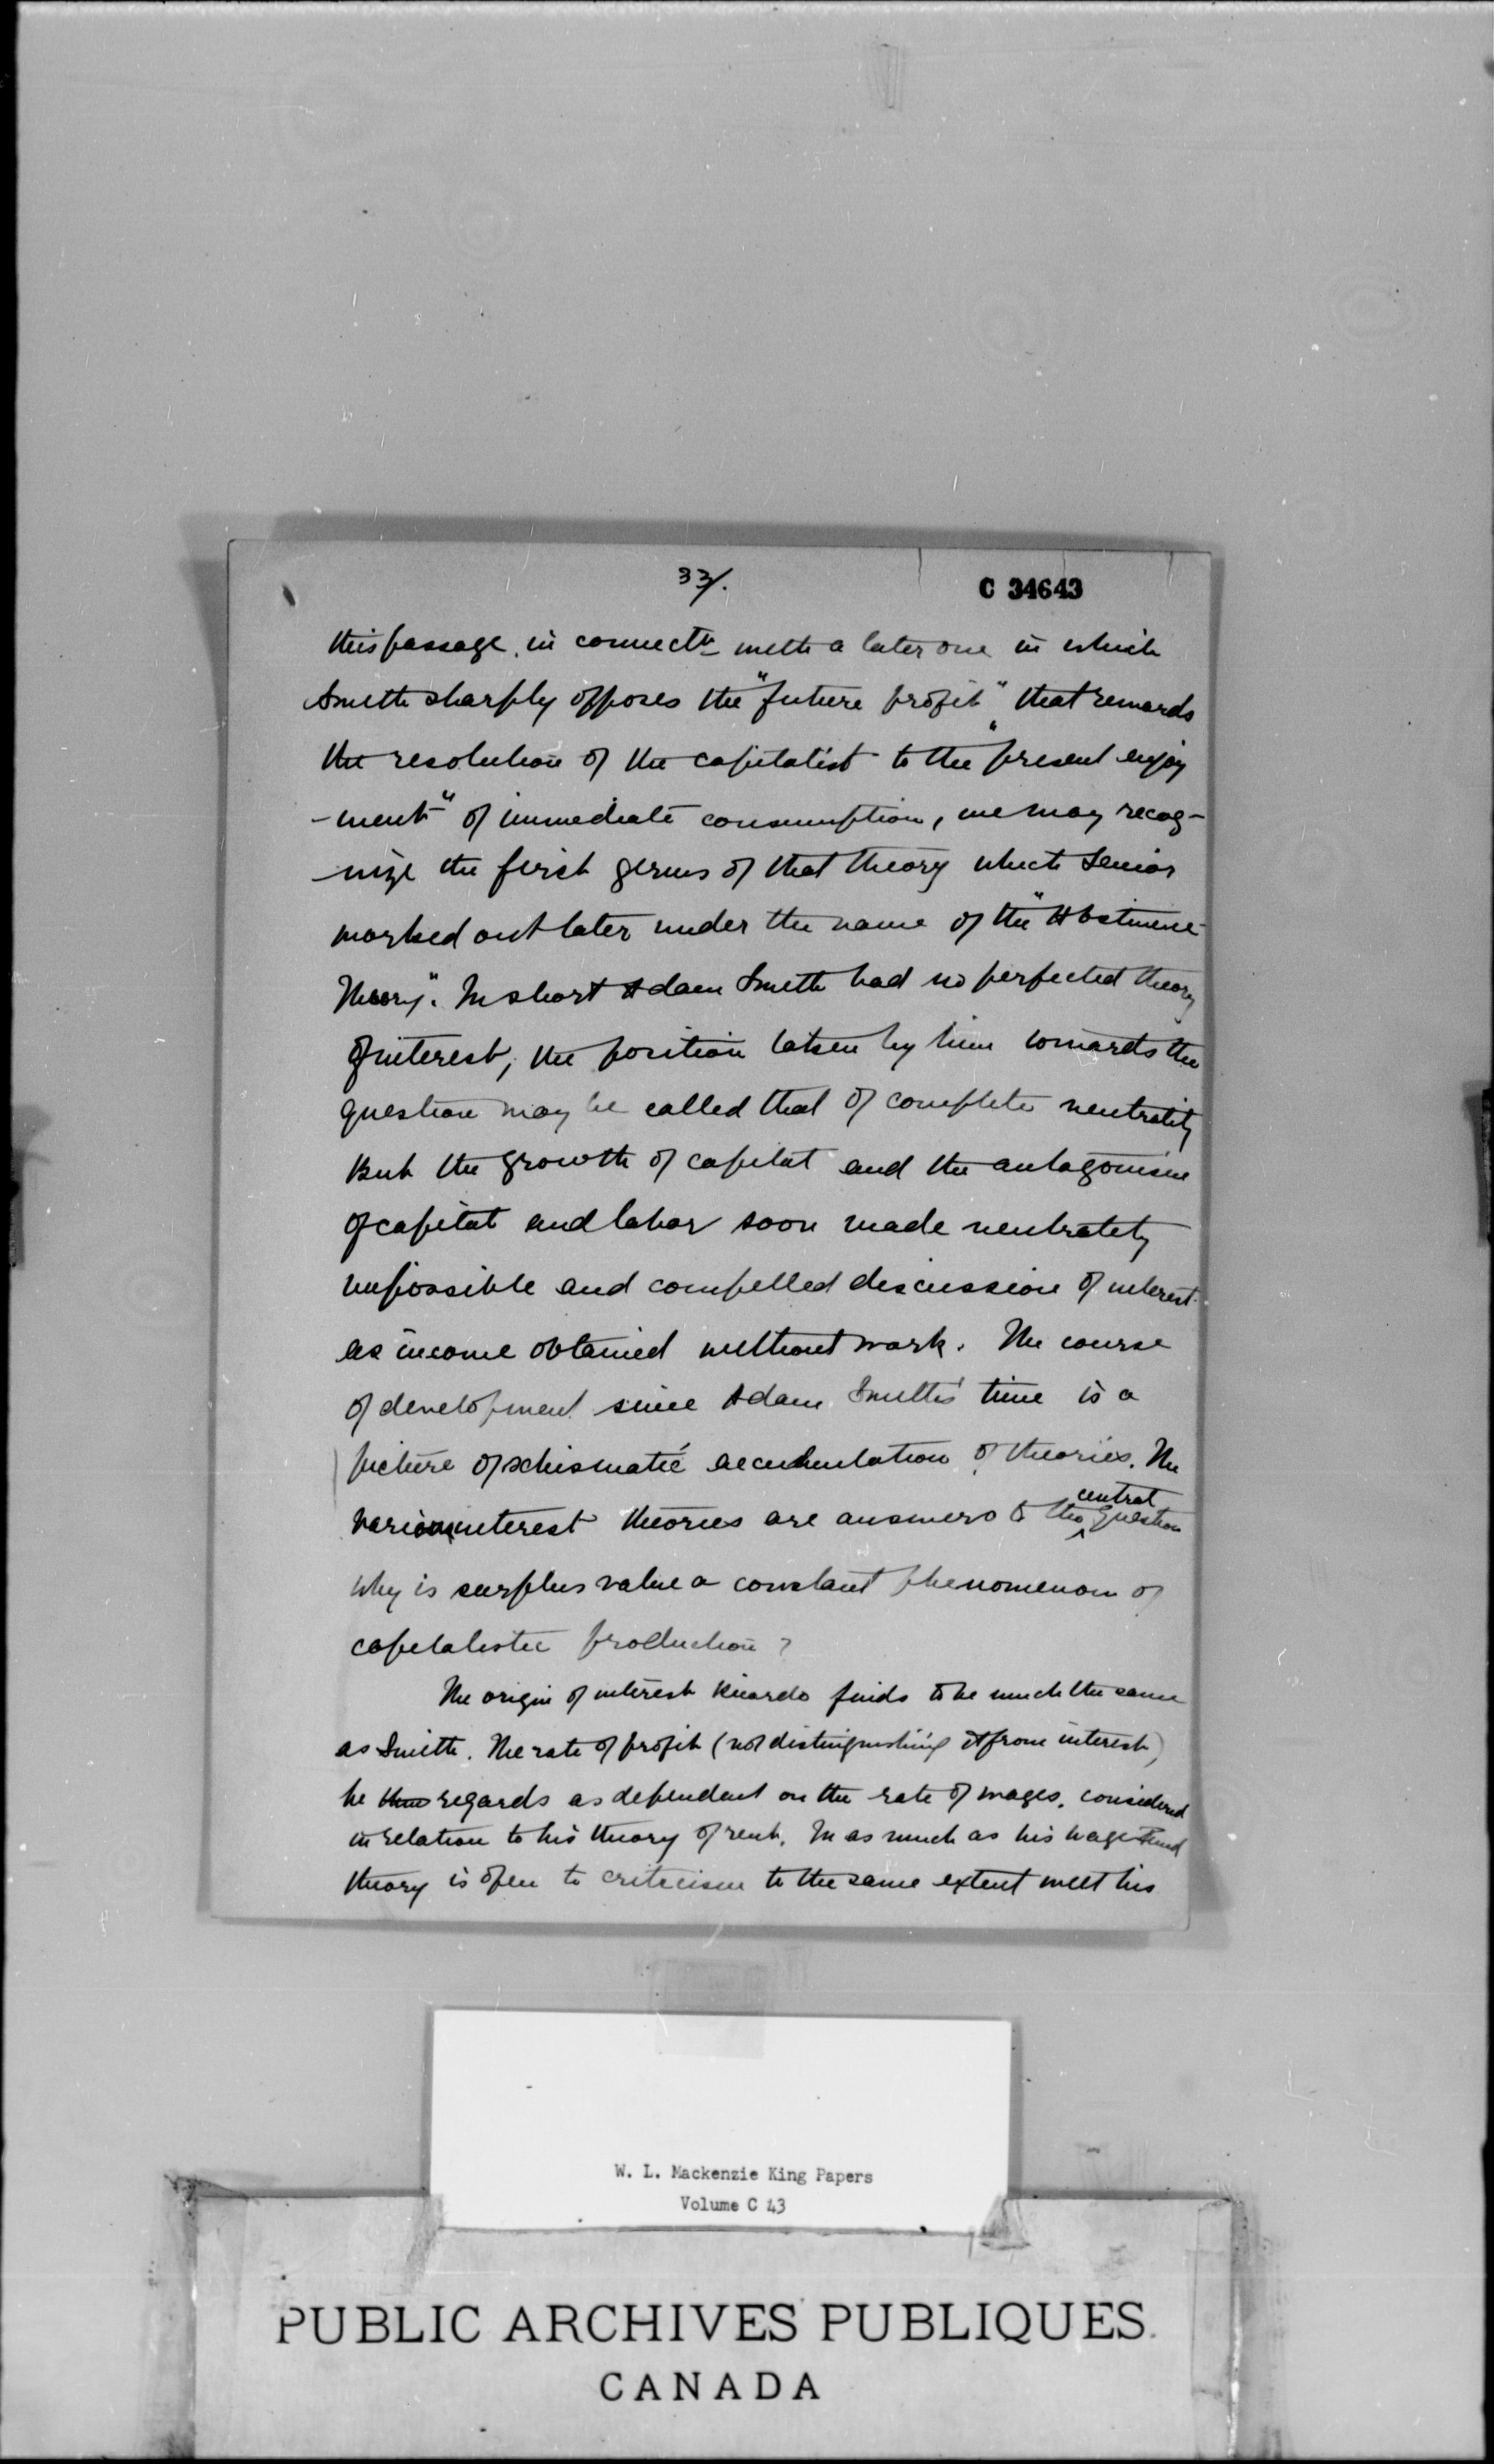 33/.
C 34643
this passage, in connectn with a later one in which
Smith sharply opposes the "future profit" that rewards
the resolution of the capitalist to the "present enjoy
-ment" of immediate consumption, we may recog-
-nize the first germs of that theory which Senior
worked out later under the name of the "Abstinence
Theory". In short Adam Smith had no perfected theory
of interest, the position taken by him towards the
question may be called that of complete neutrality
But the growth of capital and the antagonism
of capital and labor soon made neutrality
impossible and compelled discussion of interest
as income obtained without work. The course
of development since Adam Smith's time is a
picture of schismatic accumulation of theories. The
various interest theories are answers to the central question
why is surplus value a constant phenomenon of
capitalistic production?
The origin of interest Ricardo finds to be much the same
as Smith. The rate of profit (not distinguishing it from interest)
he thus regards as dependent on the rate of wages, considered
in relation to his theory of rent. In as much as his wage fund
theory is open to criticism to the same extent will his
W. L. Mackenzie King Papers
Volume C 43
PUBLIC ARCHIVES PUBLIQUES
CANADA